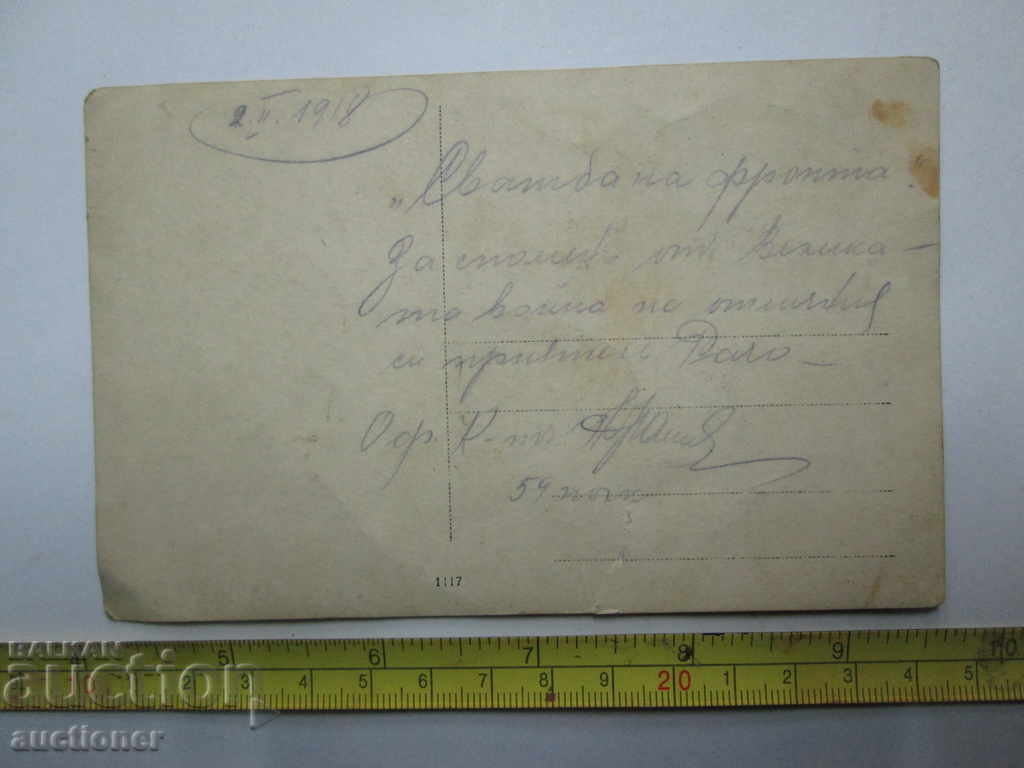 2.II.1918
„Сватба на фронта"
За спомен от Велика-
та война на
си приятел
Оф. К-тъ
59 полк
1117
4 5 6 7 8 9 10
1 2 3 4 5 6 7 8 9 20 1 2 3 4 5
BALKAN
auction
auctioner